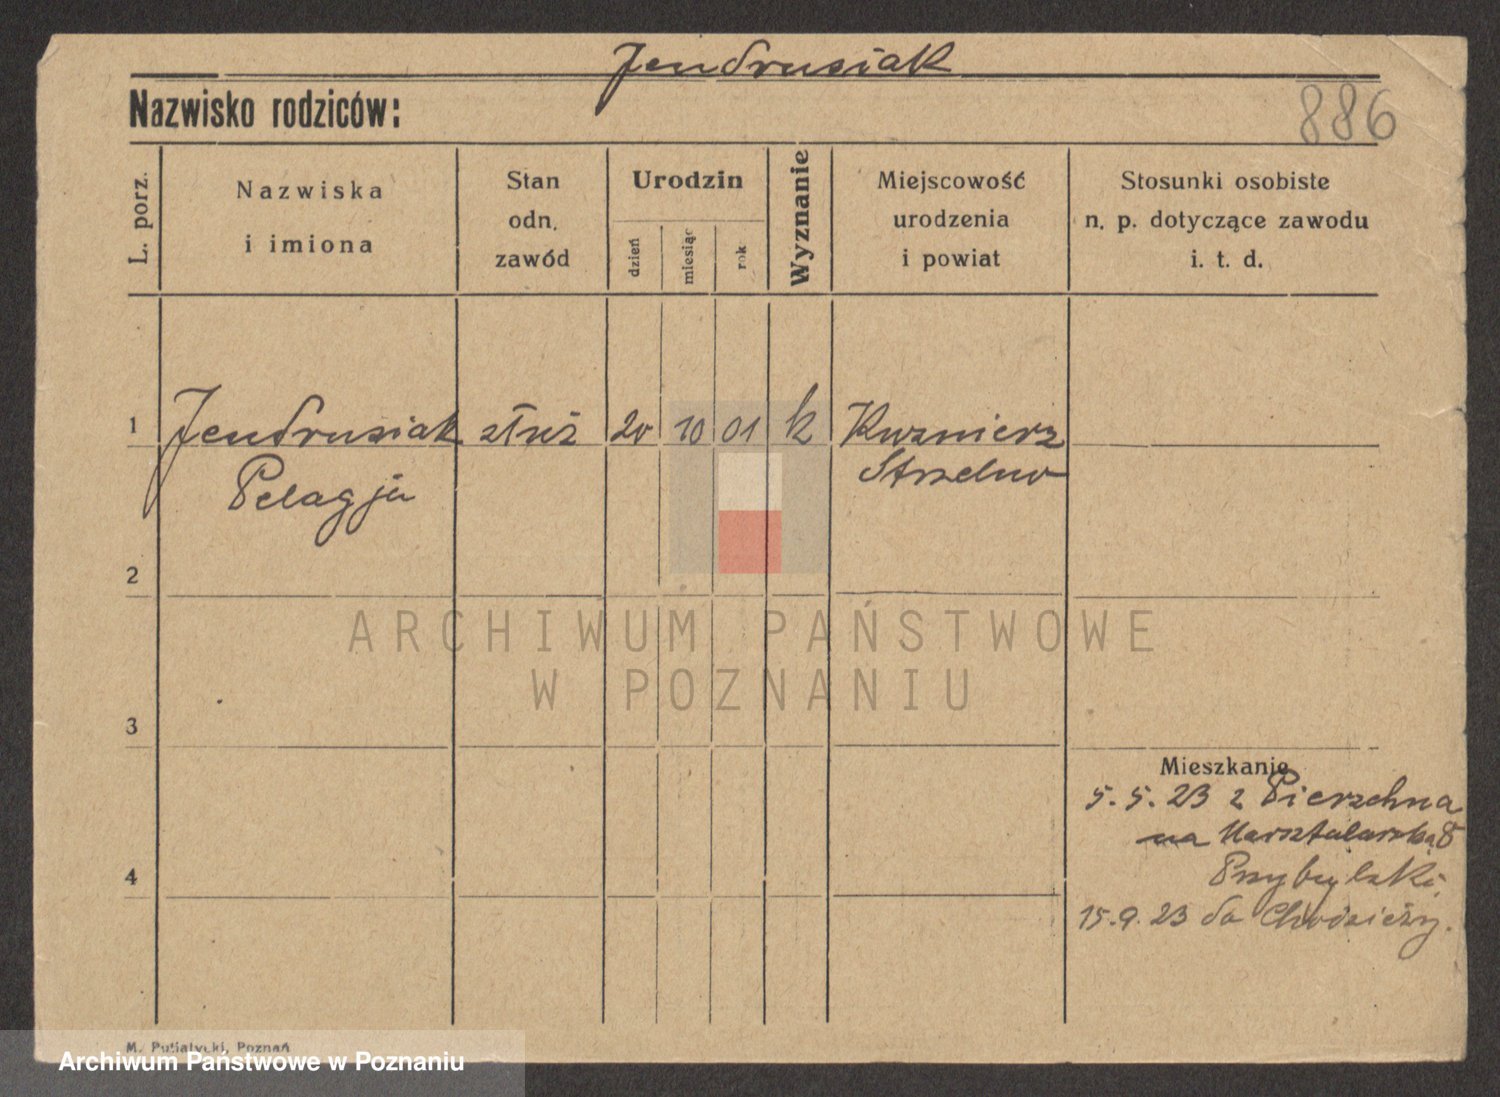 Jendrusiak
886
Nazwisko rodziców:
L. porz.
Nazwiska
i imiona
Stan
odn.
zawód
Urodzin
dzień
miesiąc
rok
Wyznanie
Miejscowość
urodzenia
i powiat
Stosunki osobiste
n. p. dotyczące zawodu
i. t. d.
1 Jendrusiak służ 20 10 01 k Kuzmierz
Pelagja Strzelno
2
ARCHIWUM PAŃSTWOWE
W POZNANIU
3
Mieszkanie
5. 5. 23 z Pierzchna
na Masztalarska 8
4
Przybylski
15. 9. 23 do Chodzieży.
M. Putiatycki, Poznań
Archiwum Państwowe w Poznaniu